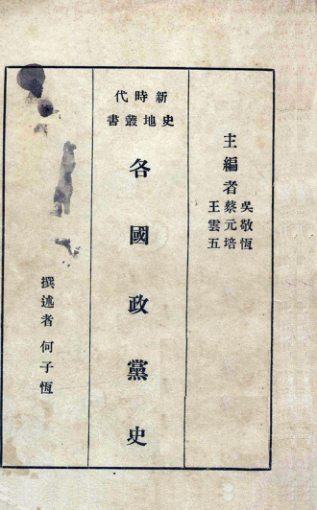 主編者
吳敬恆
蔡元培
王雲五
新時代
史地叢書
各國政黨史
撰述者 何子恆